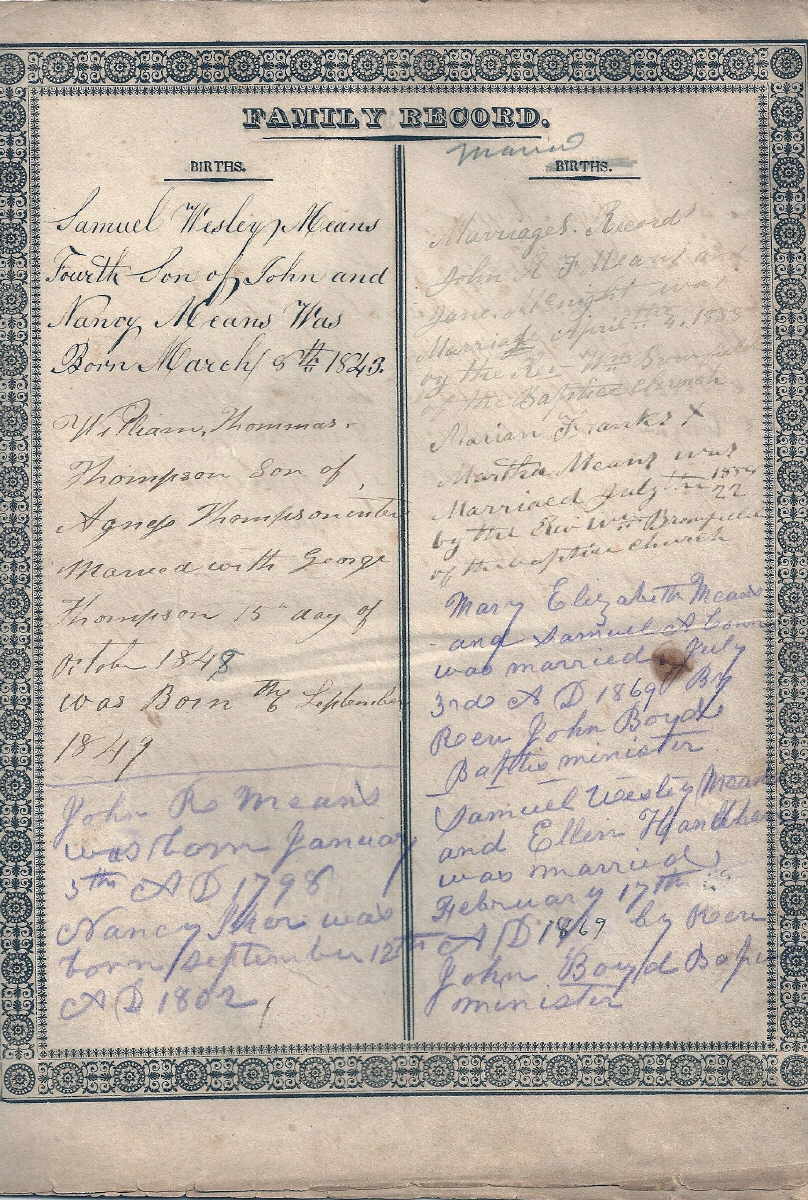 FAMILY RECORD.
BIRTHS.
Samuel Wesley Means
Fourth Son of John and
Nancy Means Was
Born March 8th 1843.
William, Thommas.
Thompson Son of
Agness Thompson
Married with George
Thompson 15th day of
October 1848
was Born th6 September
1849
John R Means
was born January
5th A D 1798
Nancy was
born september 12th
A D 1802
BIRTHS.
Marriages. Record
John F Means
Jane was
Married April 4. 1833
by the Rev Wm
of the Baptist Church
Marian Franks X
Martha Means was
Marriaed July 22
by the Rev Wm
of the Baptise Church
Mary Elizabeth Means
and Samuel A
was married July
3rd A D 1869 By
Rev John Boyd
Baptis minister
Samuel Wesley Means
and Ellen
was married
February 17th
A D 1869 by Rev
John Boyd
minister